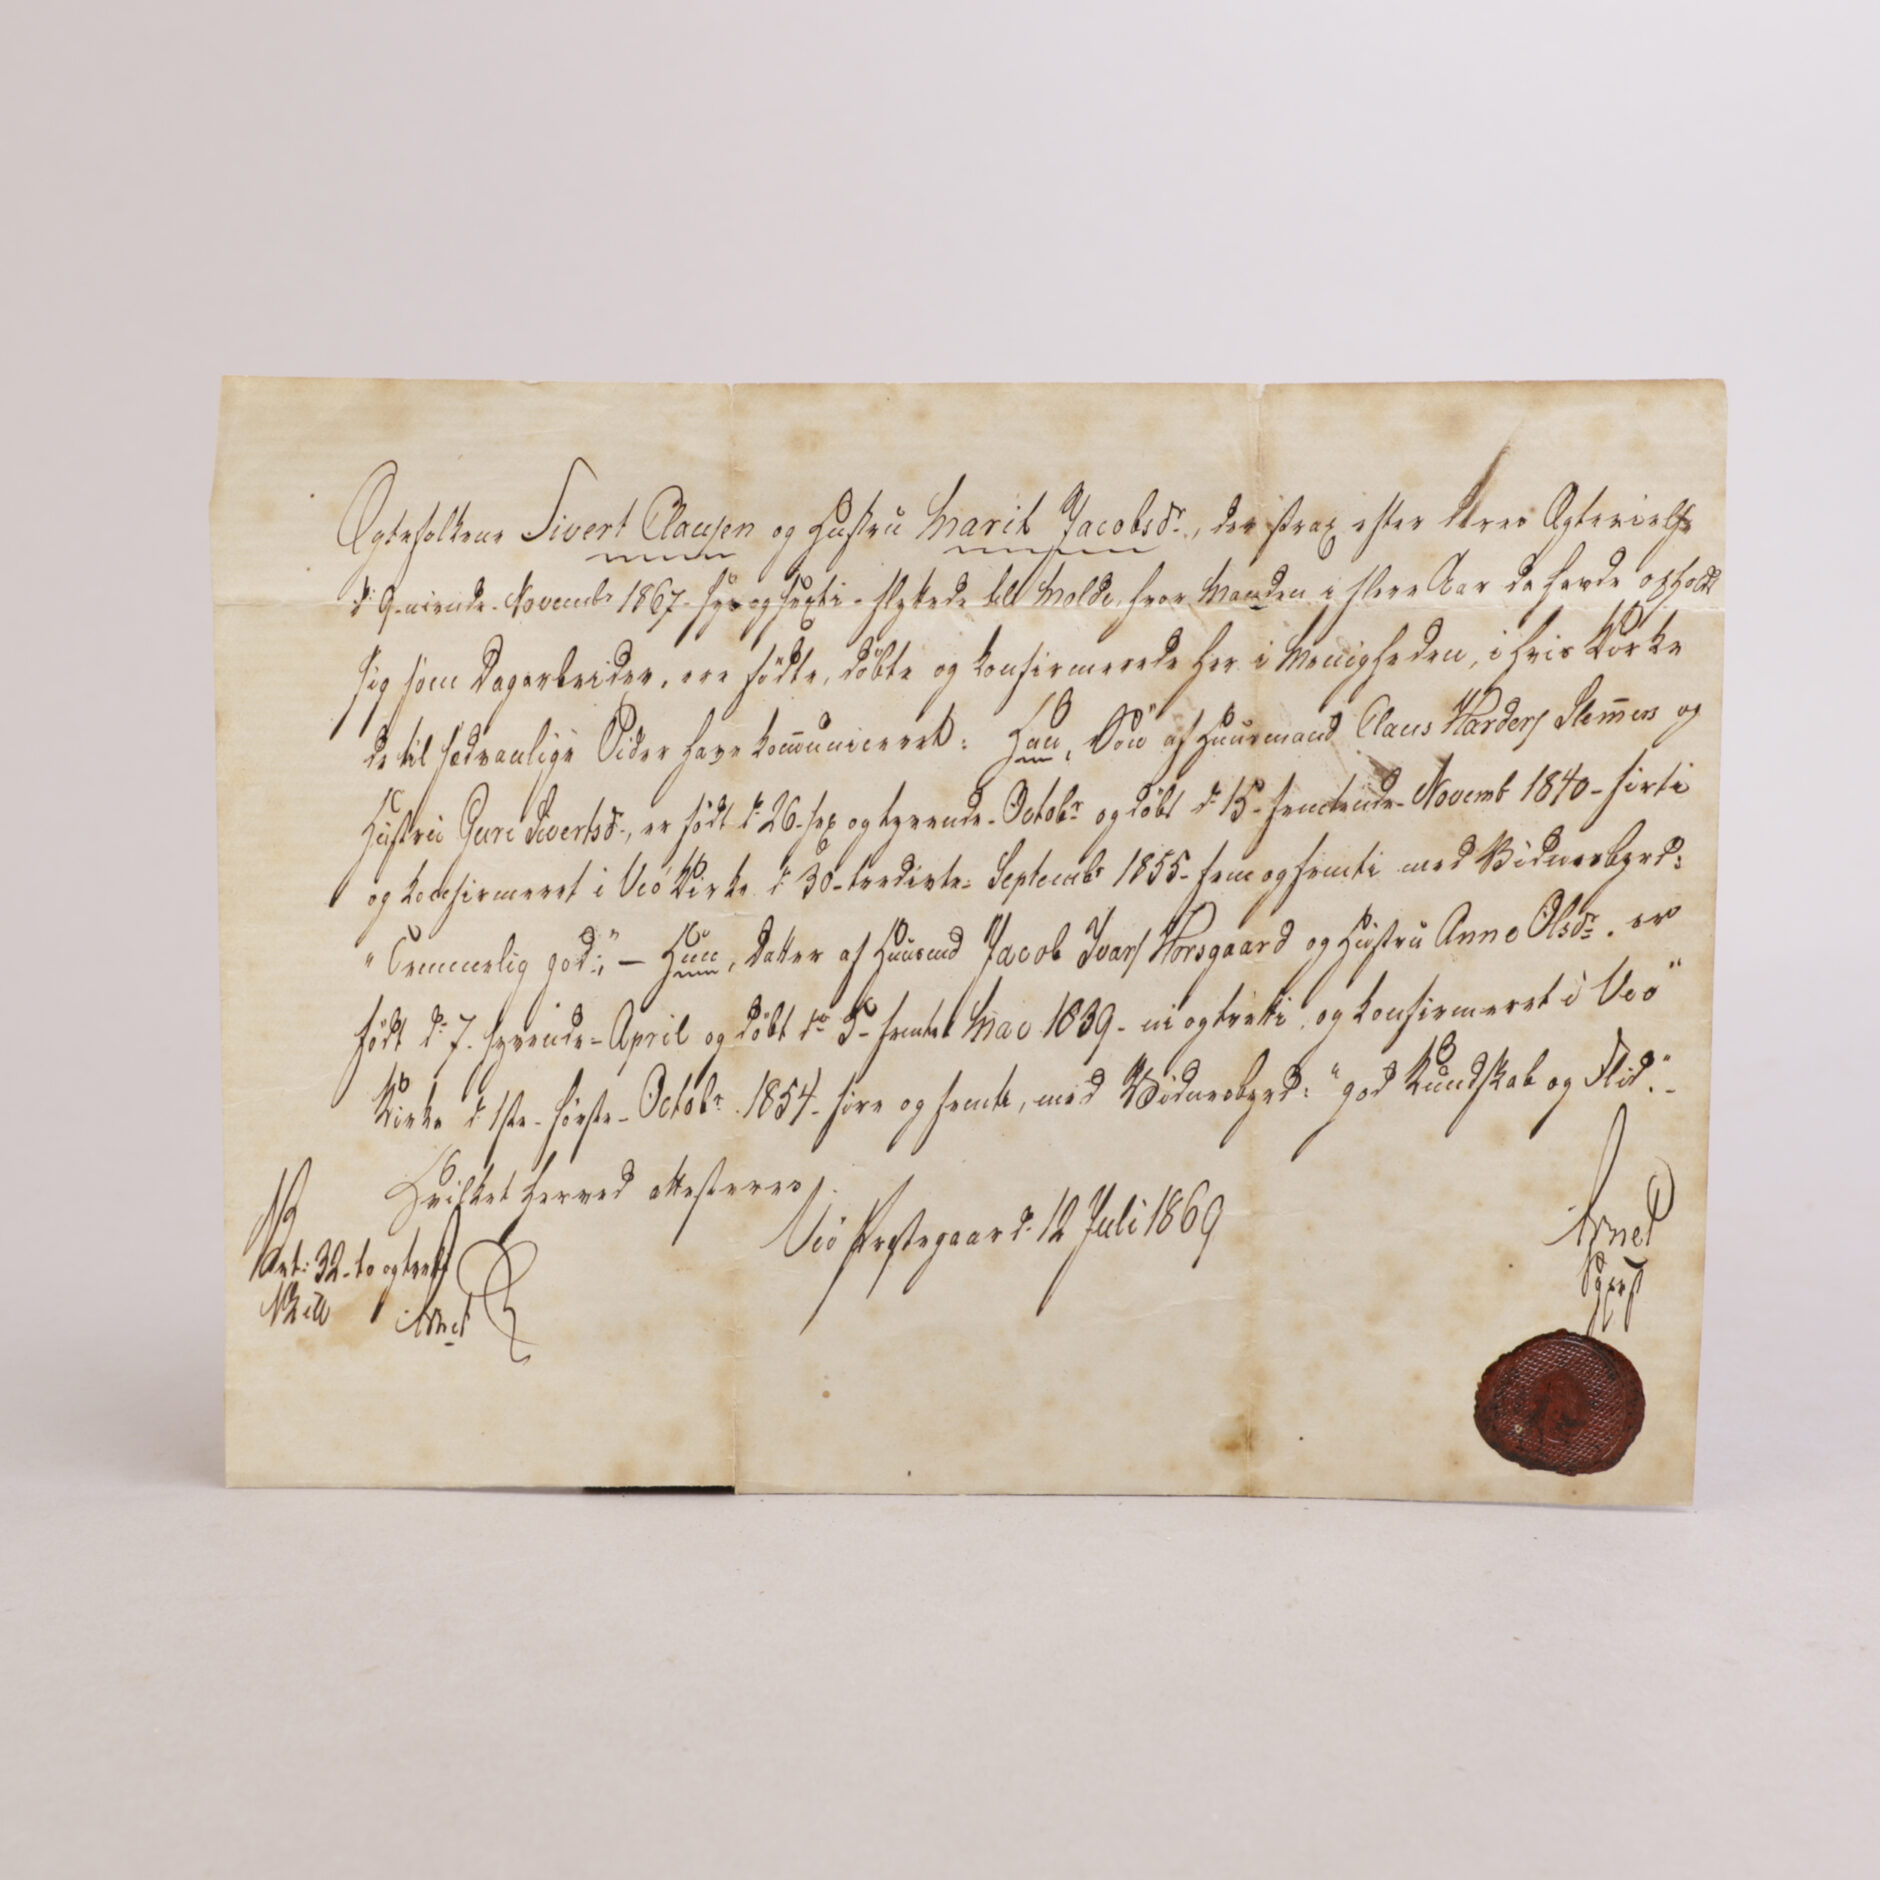 Ægtefolkene Sivert Clausen og Hustru Marit Jacobsdr., der strax efter deres Ægtevielse
d: 9-niende-Novembr 1867-syv og sexti-flyttede til Molde, hvor Manden i flere Aar da havde opholdt
sig som Dagarbeider, ere födte, döbte og konfirmerede her i Menigheden, i hvis Kirke
de til sædvanlige Tider have kommuniceret: Han, Sön af Huusmand Claus Hardersen Slemmen og
Hustru Guri Sivertsdr., er födt d: 26-sex og tyvende-Octobr og döbt d: 15-femtende-Novemb 1840-firti
og konfirmeret i Veö Kirke d: 30-tredivte-Septembr 1855-fem og femti med Vidnesbyrd:
"Temmelig god:," — Hun, Datter af Huusmd Jacob Ivars Horsgaard og Hustru Anne Olsdr. er
födt d: 7-syvende-April og döbt d: 5-femte-Mai 1839-ni og tretti, og konfirmeret i Veö
Kirke d: 1ste-förste-Octobr 1854-fire og femti, med Vidnesbyrd: "god Kundskab og Flid."-
Hvilket herved attesteres.
Veö Præstegaard d. 12 Juli 1869
Arnet
Sgpr
Bet: 32-to og tretti
Arnet